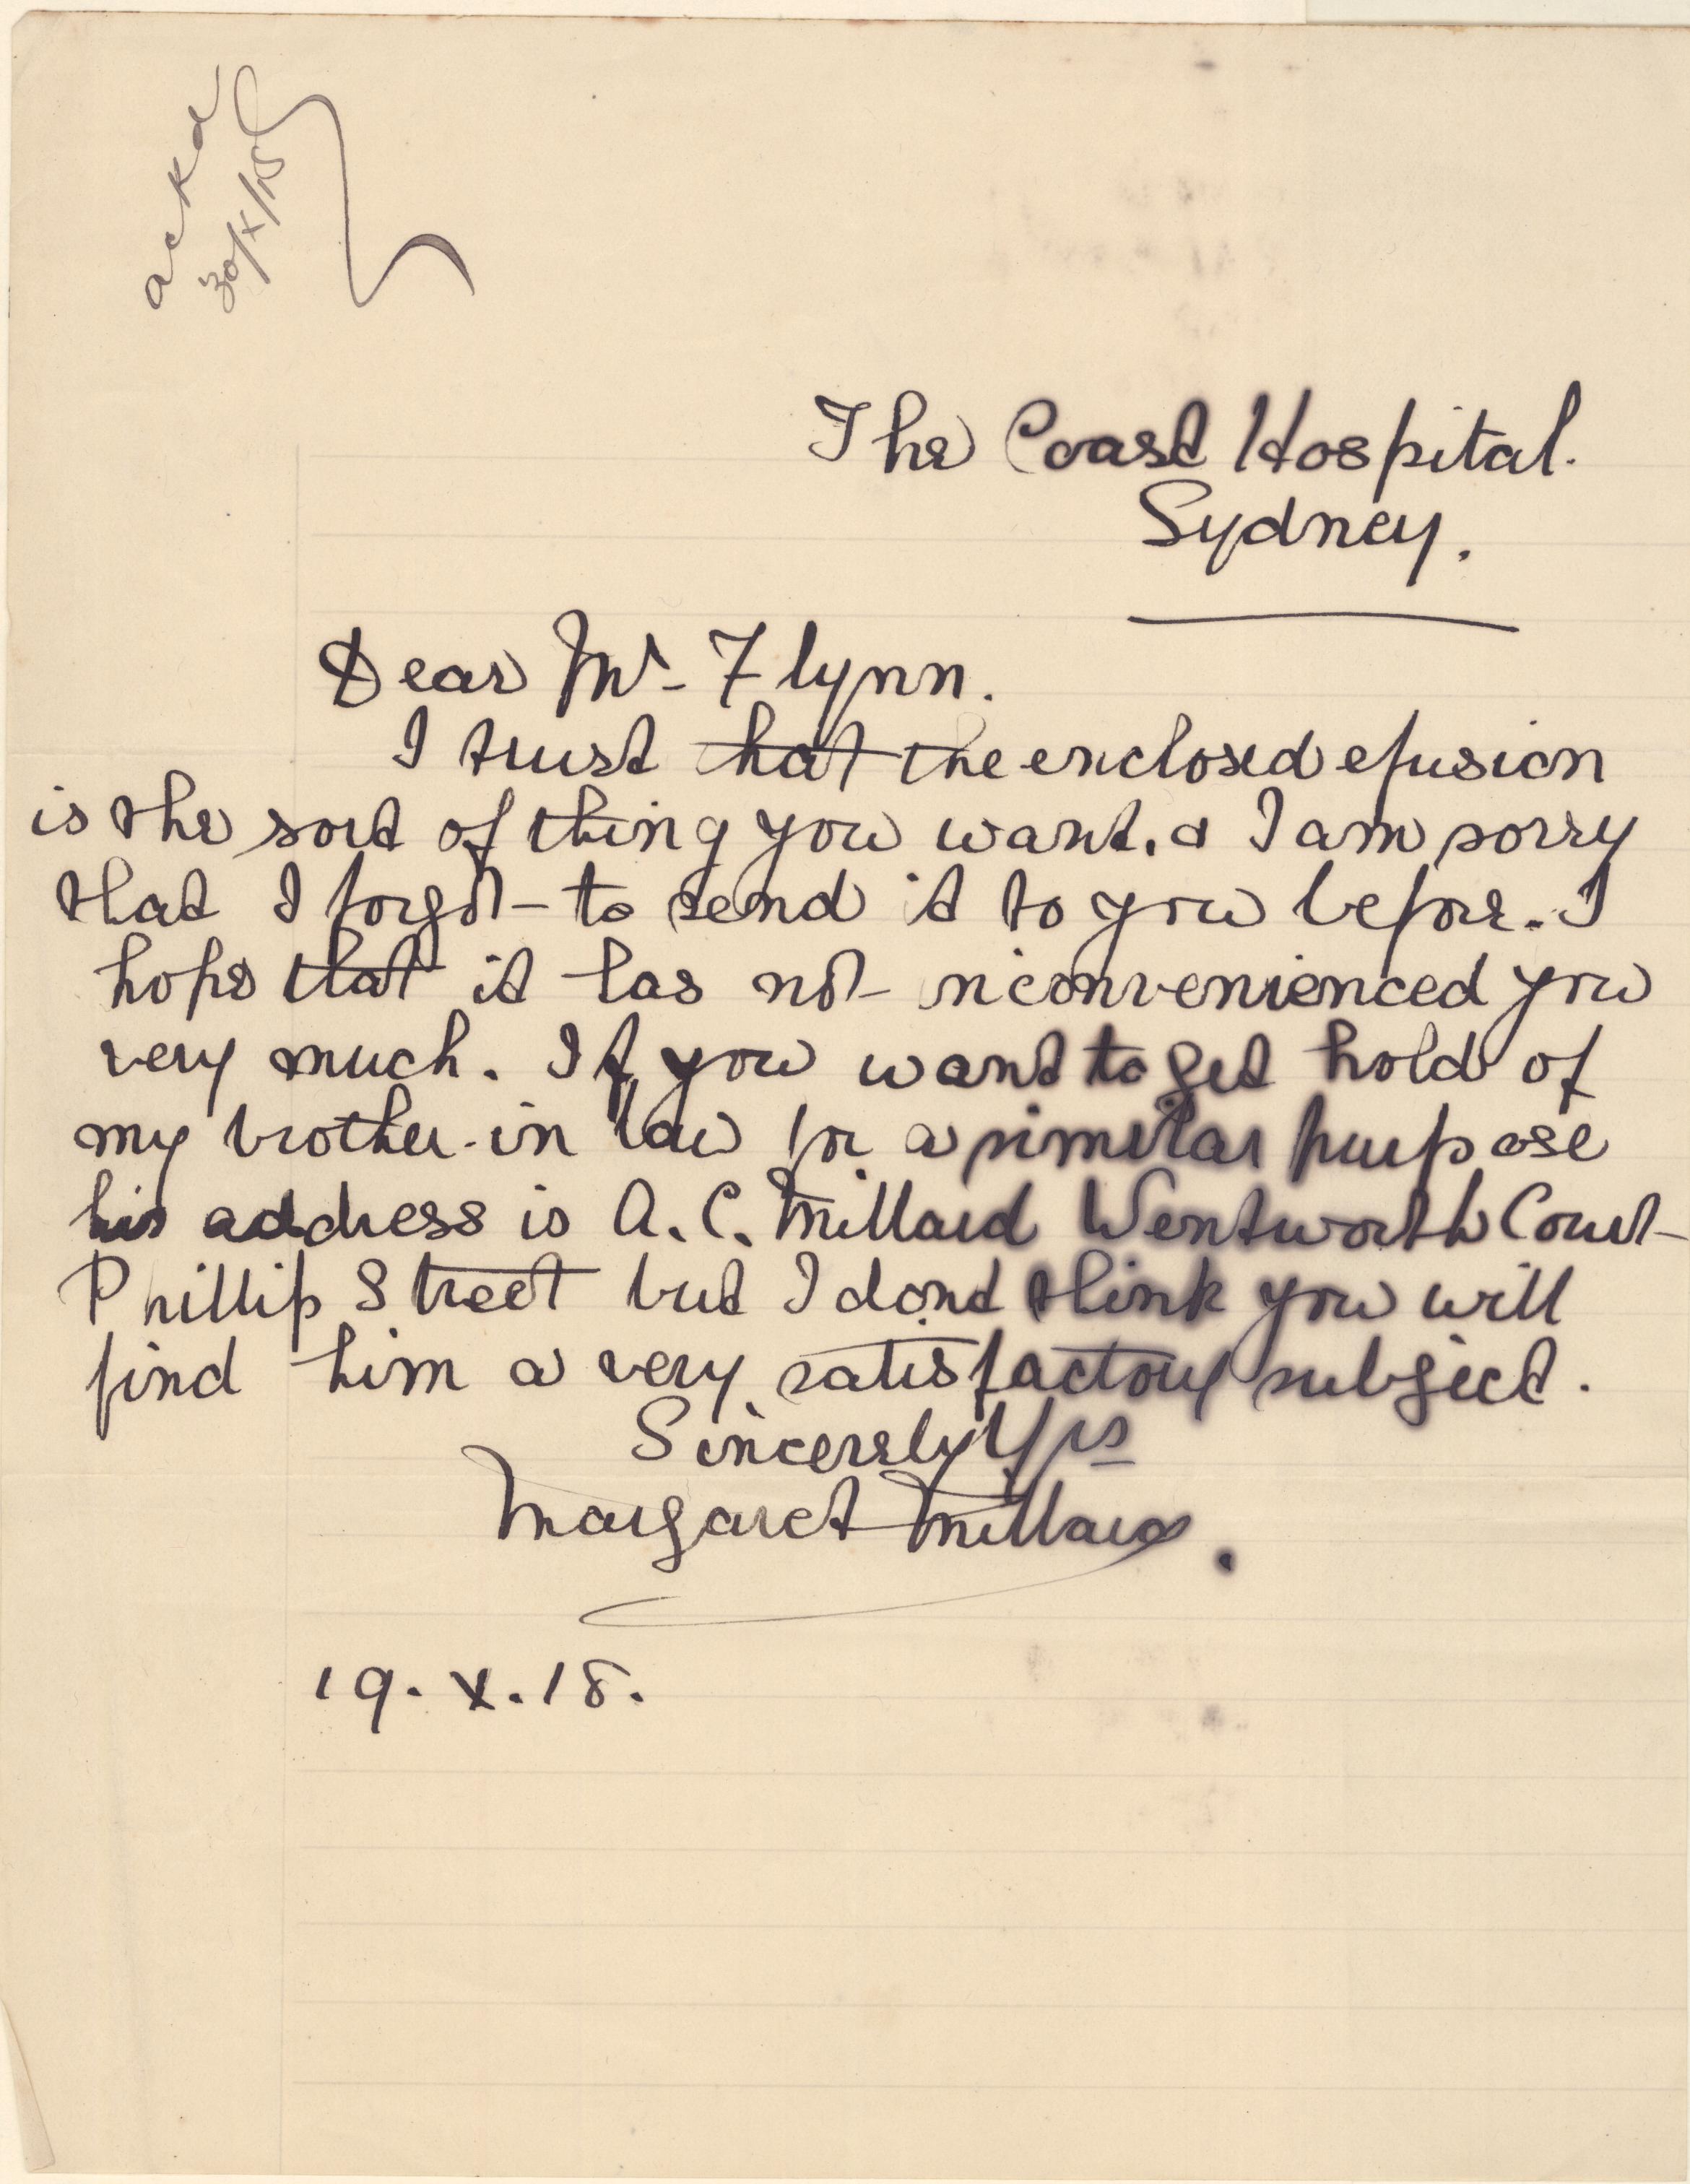 ackd
30/X/18
The Coast Hospital.
Sydney.
Dear Mr. Flynn.
I trust that the enclosed efusion
is the sort of thing you want. & I am sorry
that I forgot to send it to you before. I
hope that it has not inconvenienced you
very much. If you want to get hold of
my brother-in law for a similar purpose
his address is A. C. Millard Wentworth Court
Phillip Street but I dont think you will
find him a very satisfactory subject.
Sincerely Yrs
Margaret Millard.
19. X. 18.